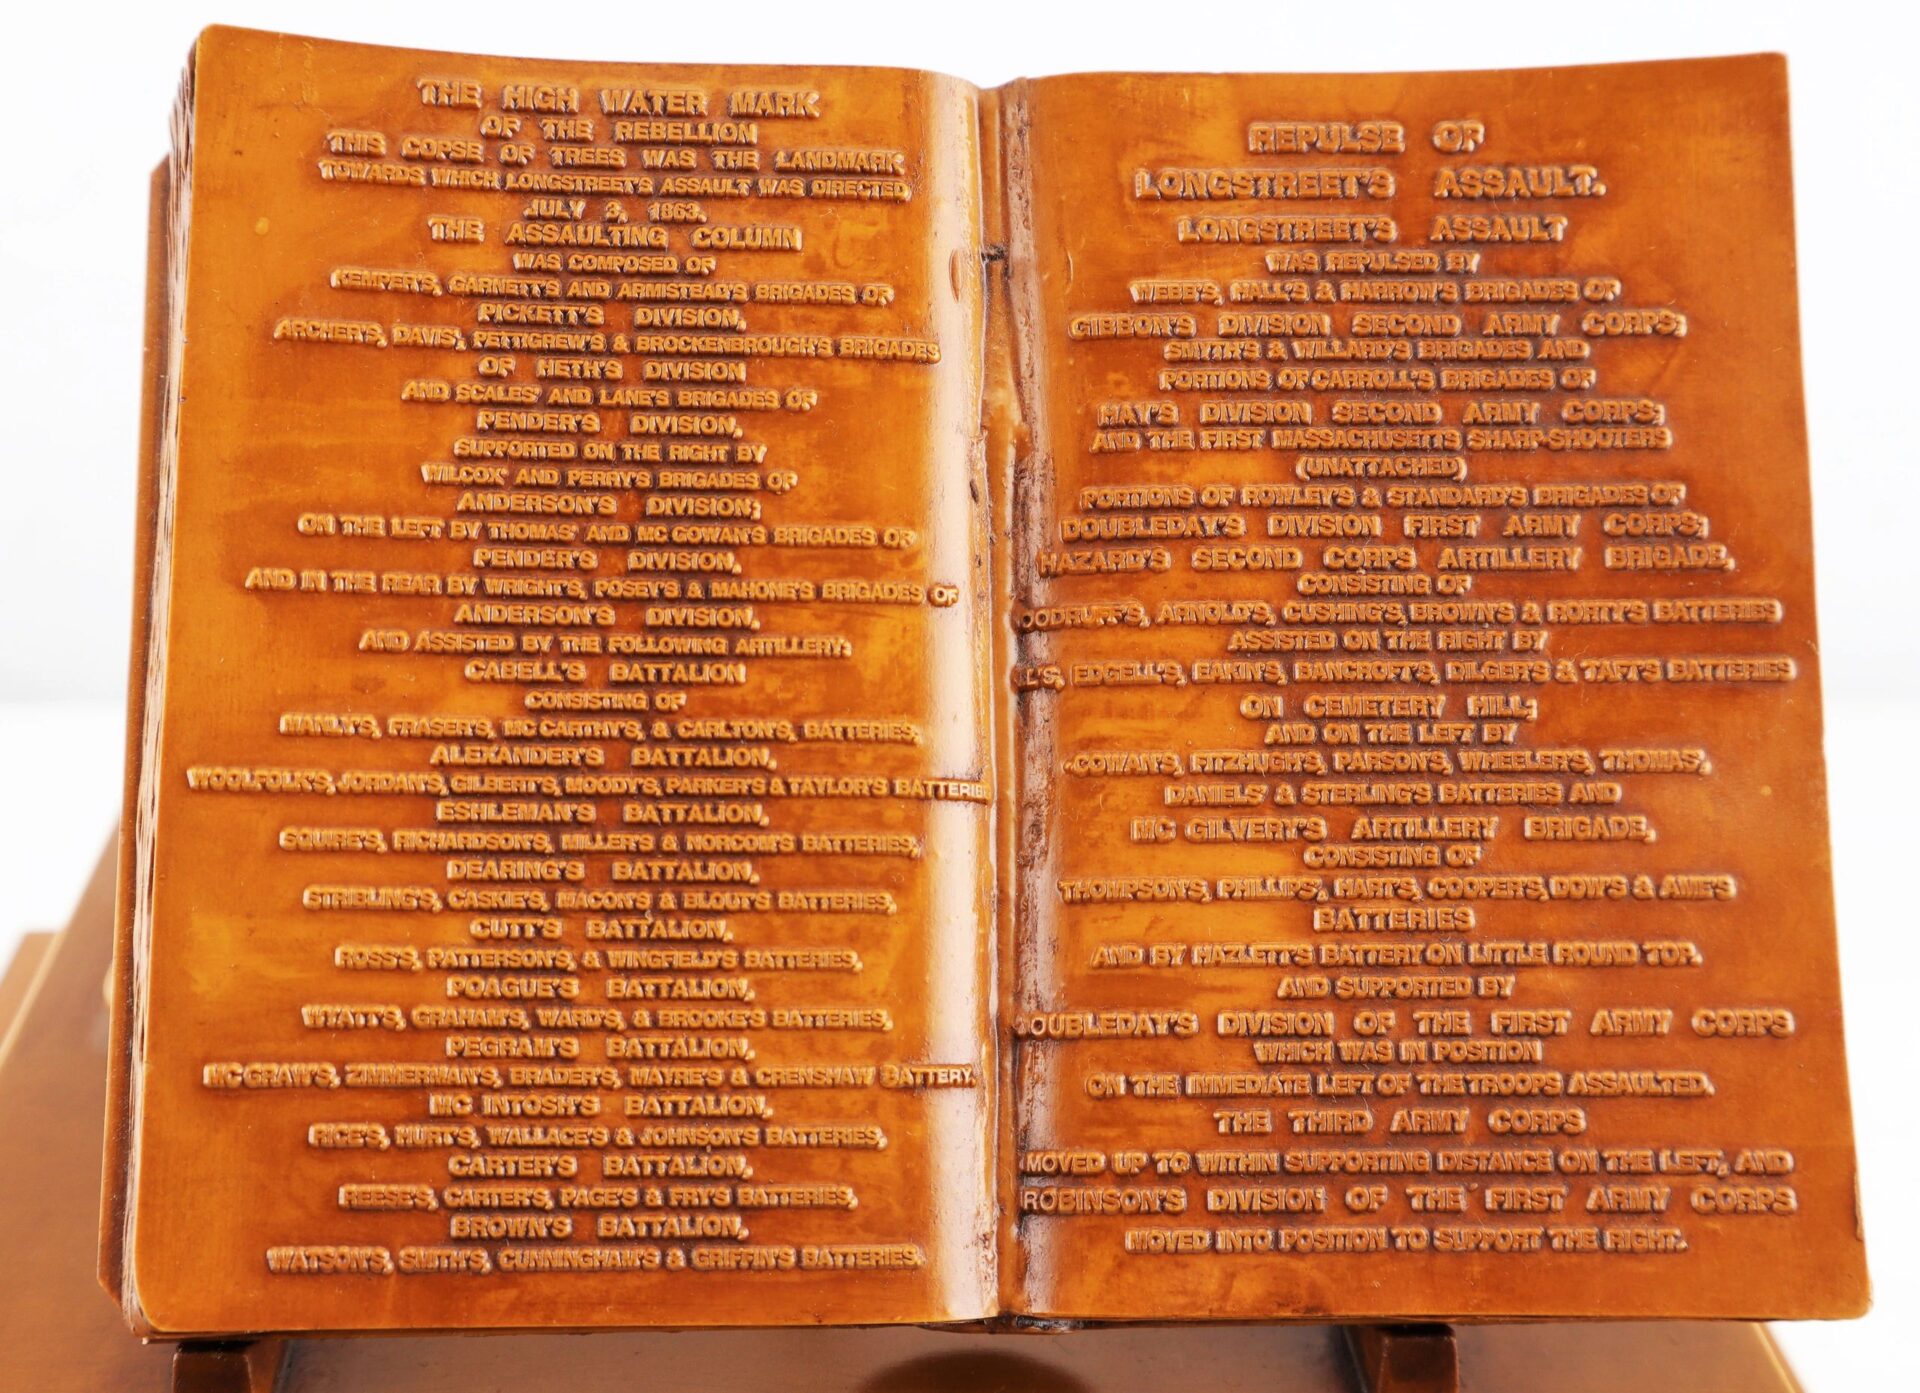 THE HIGH WATER MARK
OF THE REBELLION
THIS COPSE OF TREES WAS THE LANDMARK
TOWARDS WHICH LONGSTREET'S ASSAULT WAS DIRECTED
JULY 3, 1863.
THE ASSAULTING COLUMN
WAS COMPOSED OF
KEMPER'S, GARNETT'S AND ARMISTEAD'S BRIGADES OF
PICKETT'S DIVISION,
ARCHER'S, DAVIS', PETTIGREW'S & BROCKENBROUGH'S BRIGADES
OF HETH'S DIVISION
AND SCALES' AND LANE'S BRIGADES OF
PENDER'S DIVISION,
SUPPORTED ON THE RIGHT BY
WILCOX' AND PERRY'S BRIGADES OF
ANDERSON'S DIVISION;
ON THE LEFT BY THOMAS' AND MC GOWAN'S BRIGADES OF
PENDER'S DIVISION,
AND IN THE REAR BY WRIGHT'S, POSEY'S & MAHONE'S BRIGADES OF
ANDERSON'S DIVISION,
AND ASSISTED BY THE FOLLOWING ARTILLERY:
CABELL'S BATTALION
CONSISTING OF
MANLY'S, FRASER'S, MC CARTHY'S, & CARLTON'S, BATTERIES,
ALEXANDER'S BATTALION,
WOOLFOLK'S, JORDAN'S, GILBERT'S, MOODY'S, PARKER'S & TAYLOR'S BATTERIES
ESHLEMAN'S BATTALION,
SQUIRE'S, RICHARDSON'S, MILLER'S & NORCOM'S BATTERIES,
DEARING'S BATTALION,
STRIBLING'S, CASKIE'S, MACON'S & BLOUT'S BATTERIES,
CUTT'S BATTALION,
ROSS'S, PATTERSON'S, & WINGFIELD'S BATTERIES,
POAGUE'S BATTALION,
WYATT'S, GRAHAM'S, WARD'S, & BROOKE'S BATTERIES,
PEGRAM'S BATTALION,
MC GRAW'S, ZIMMERMAN'S, BRADER'S, MAYRE'S & CRENSHAW BATTERY.
MC INTOSH'S BATTALION,
RICE'S, HURT'S, WALLACE'S & JOHNSON'S BATTERIES,
CARTER'S BATTALION,
REESE'S, CARTER'S, PAGE'S & FRY'S BATTERIES,
BROWN'S BATTALION,
WATSON'S, SMITH'S, CUNNINGHAM'S & GRIFFIN'S BATTERIES.
REPULSE OF
LONGSTREET'S ASSAULT.
LONGSTREET'S ASSAULT
WAS REPULSED BY
WEBB'S, HALL'S & HARROW'S BRIGADES OF
GIBBON'S DIVISION SECOND ARMY CORPS;
SMYTH'S & WILLARD'S BRIGADES AND
PORTIONS OF CARROLL'S BRIGADES OF
HAY'S DIVISION SECOND ARMY CORPS;
AND THE FIRST MASSACHUSETTS SHARP-SHOOTERS
(UNATTACHED)
PORTIONS OF ROWLEY'S & STANDARD'S BRIGADES OF
DOUBLEDAY'S DIVISION FIRST ARMY CORPS;
HAZARD'S SECOND CORPS ARTILLERY BRIGADE,
CONSISTING OF
OODRUFF'S, ARNOLD'S, CUSHING'S, BROWN'S & RORTY'S BATTERIES
ASSISTED ON THE RIGHT BY
L'S, EDGELL'S, EAKIN'S, BANCROFT'S, DILGER'S & TAFT'S BATTERIES
ON CEMETERY HILL;
AND ON THE LEFT BY
COWAN'S, FITZHUGH'S, PARSON'S, WHEELER'S, THOMAS',
DANIELS' & STERLING'S BATTERIES AND
MC GILVERY'S ARTILLERY BRIGADE,
CONSISTING OF
THOMPSON'S, PHILLIPS', HART'S, COOPER'S, DOW'S & AME'S
BATTERIES
AND BY HAZLETT'S BATTERY ON LITTLE ROUND TOP.
AND SUPPORTED BY
DOUBLEDAY'S DIVISION OF THE FIRST ARMY CORPS
WHICH WAS IN POSITION
ON THE IMMEDIATE LEFT OF THE TROOPS ASSAULTED.
THE THIRD ARMY CORPS
MOVED UP TO WITHIN SUPPORTING DISTANCE ON THE LEFT, AND
ROBINSON'S DIVISION OF THE FIRST ARMY CORPS
MOVED INTO POSITION TO SUPPORT THE RIGHT.